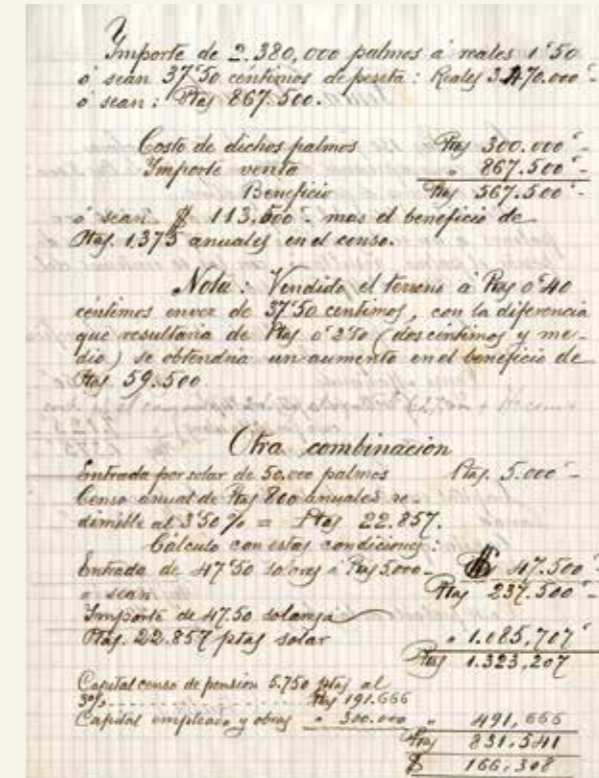 Importe de 2.380,000 palmos á reales 1'50
ó sean 37'50 centimos de peseta: Reales 3.470.000'-
ó sean: Ptas 867.500.
Costo de dichos palmos Ptas 300.000'-
Importe venta " 867.500'-
Beneficio Ptas 567.500'-
ó sean $ 113.500'- mas el beneficio de
Ptas. 1.375 anuales en el censo.
Nota: Vendido el terreno á Ptas 0'40
centimos en vez de 37'50 centimos, con la diferencia
que resultaria de Ptas 0'2'50 (dos centimos y me-
dio) se obtendria un aumento en el beneficio de
Ptas. 59.500
Otra combinacion
Entrada por solar de 50.000 palmos Ptas. 5.000'-
Censo anual de Ptas 800 anuales re-
dimible al 3'50 % = Ptas 22.857.
Cálculo con estas condiciones:
Entrada de 47'50 solares á Ptas 5.000 - $ 47.500'-
ó sean Ptas 237.500'-
Importe de 47.50 solares á
Ptas. 22.857 ptas solar " 1.085,707'
Ptas 1.323,207
Capital censo de pension 5.750 ptas al
3% Ptas 191.666
Capital empleado y obras " 300.000 " 491,666
Ptas 831.541
$ 166,308